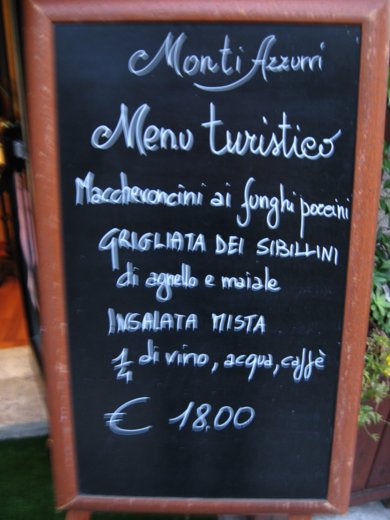 Monti Azzurri
Menu turistico
Maccheroncini ai funghi porcini
GRIGLIATA DEI SIBILLINI
di agnello e maiale
INSALATA MISTA
1/4 di vino, acqua, caffè
€ 18.00